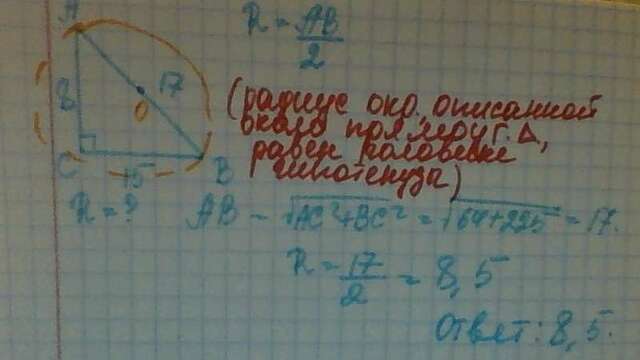 A
8
17
O
C
15
B
R = AB/2
(радиус окр. описанной
около прямоуг. Δ,
равен половине
гипотенузы)
R = ?
AB = √AC²+BC² = √64+225 = 17.
R = 17/2 = 8,5
Ответ: 8,5.